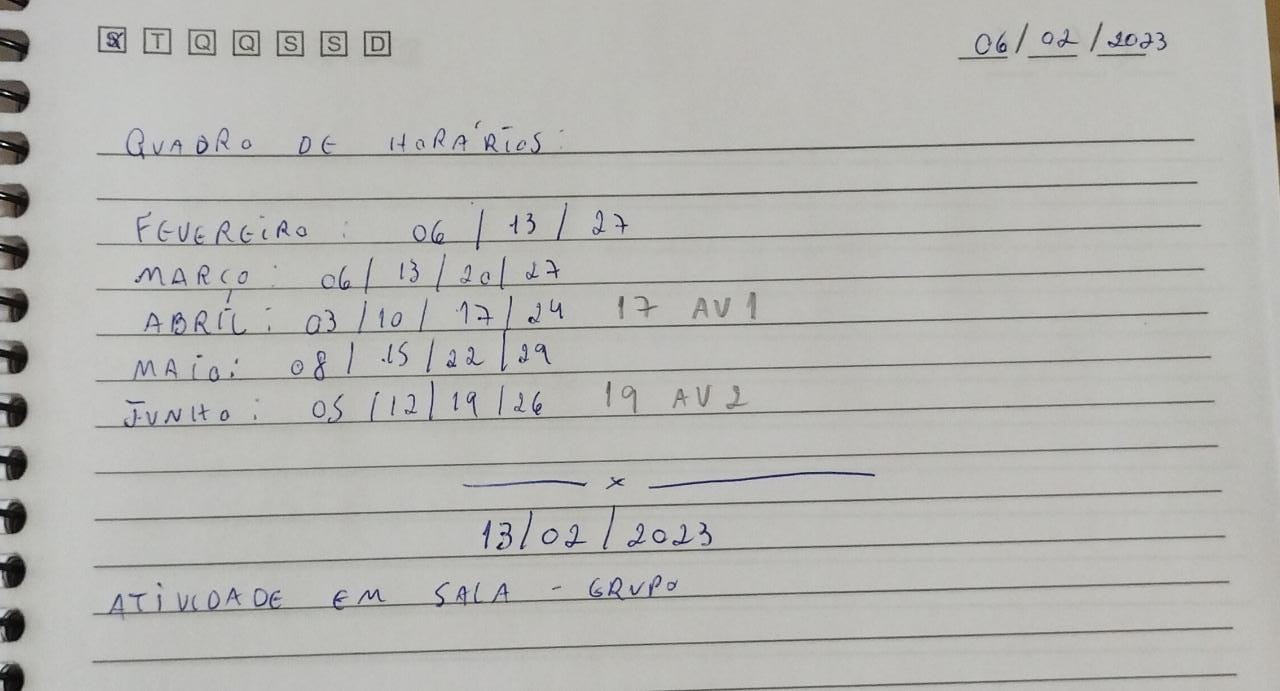 S T Q Q S S D 06/02/2023
QUADRO DE HORÁRIOS:
FEVEREIRO: 06 / 13 / 27
MARÇO: 06 / 13 / 20 / 27
ABRIL: 03 / 10 / 17 / 24 17 AV1
MAIO: 08 / 15 / 22 / 29
JUNHO: 05 / 12 / 19 / 26 19 AV2
x
13/02/2023
ATIVIDADE EM SALA - GRUPO